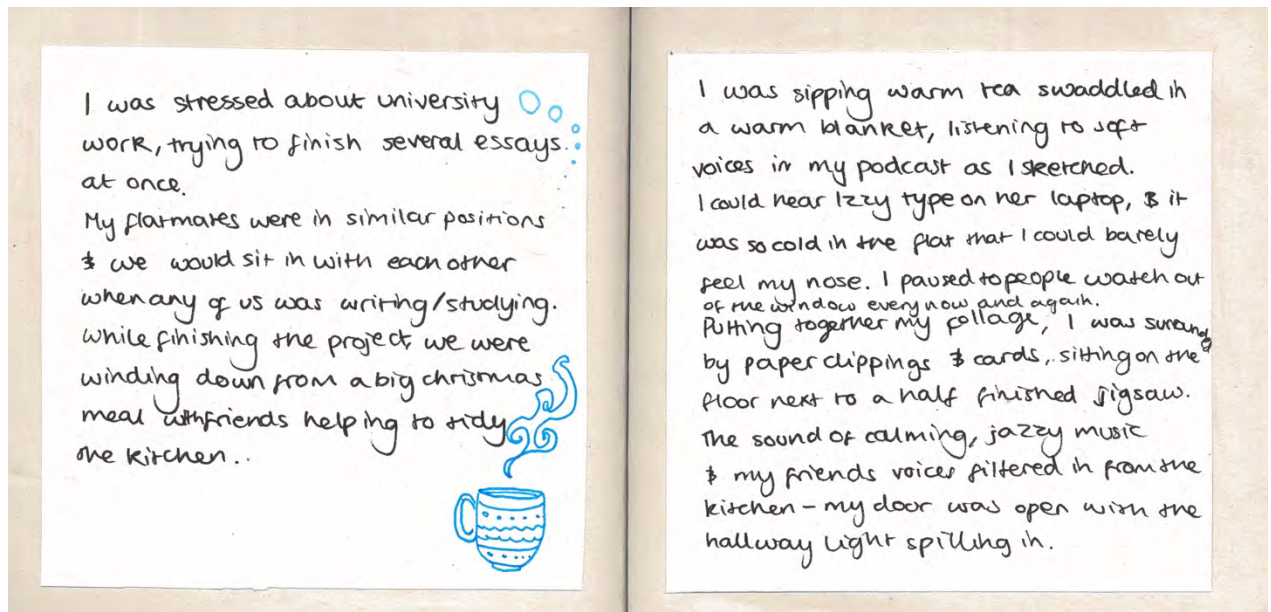 I was stressed about university
work, trying to finish several essays
at once.
My flatmates were in similar positions
& we would sit in with each other
when any of us was writing/studying.
While finishing the project, we were
winding down from a big christmas
meal with friends helping to tidy
the kitchen..
I was sipping warm tea swaddled in
a warm blanket, listening to soft
voices in my podcast as I sketched.
I could hear Izzy type on her laptop, & it
was so cold in the flat that I could barely
feel my nose. I paused to people watch out
of the window every now and again.
Putting together my collage, I was surounded
by paper clippings & cards, sitting on the
floor next to a half finished jigsaw.
The sound of calming, jazzy music
& my friends voices filtered in from the
kitchen – my door was open with the
hallway light spilling in.